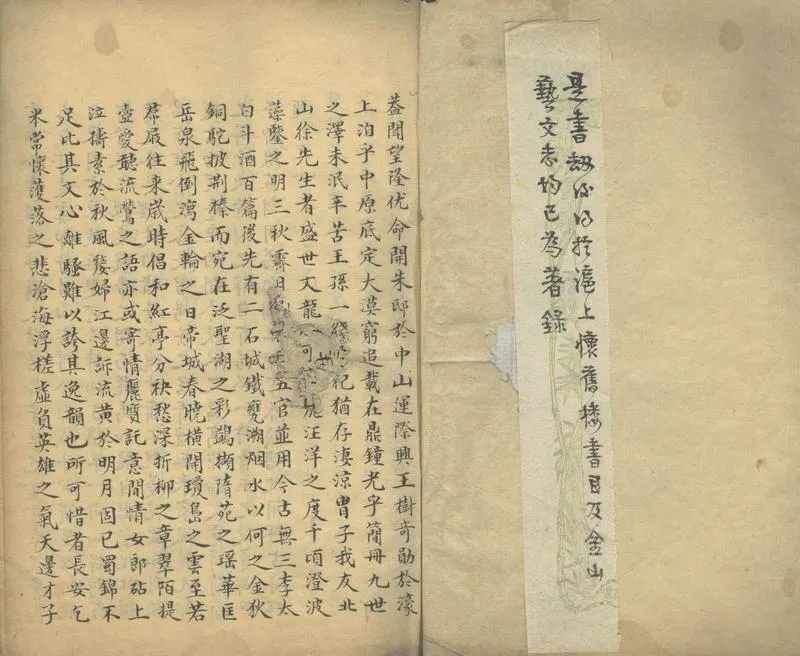 是書劫後得於滬上懷舊樓書目及金山
藝文志均已為著錄
蓋聞望隆优命開朱邸於中山運際興王樹奇勛於濠
上泊乎中原底定大漠窮追載在鼎鐘光乎簡冊九世
之澤未泯辛苦王孫一綫祀猶存淒涼冑子我友北
山徐先生者盛世文龍汪洋之度千頃澄波
藻鑒之明三秋霽日五官並用今古無三李太
白斗酒百篇後先有二石城鐵甕溯烟水以何之金狄
銅駝披荆榛而宛在泛聖湖之彩鷁擷隋苑之瑶華匡
岳泉飛倒瀉金輪之日帝城春曉橫開瓊島之雲至若
屐往来嵗時倡和紅亭分袂愁深折柳之章翠陌提
壺愛聽流鶯之語亦或寄情麗質託意閒情女郎砧上
泣擣素於秋風嫠婦江邊訴流黄於明月固已蜀錦不
足比其文心離騷難以誇其逸韻也所可惜者長安乞
米常懷濩落之悲滄海浮槎虛負英雄之氣天邊才子